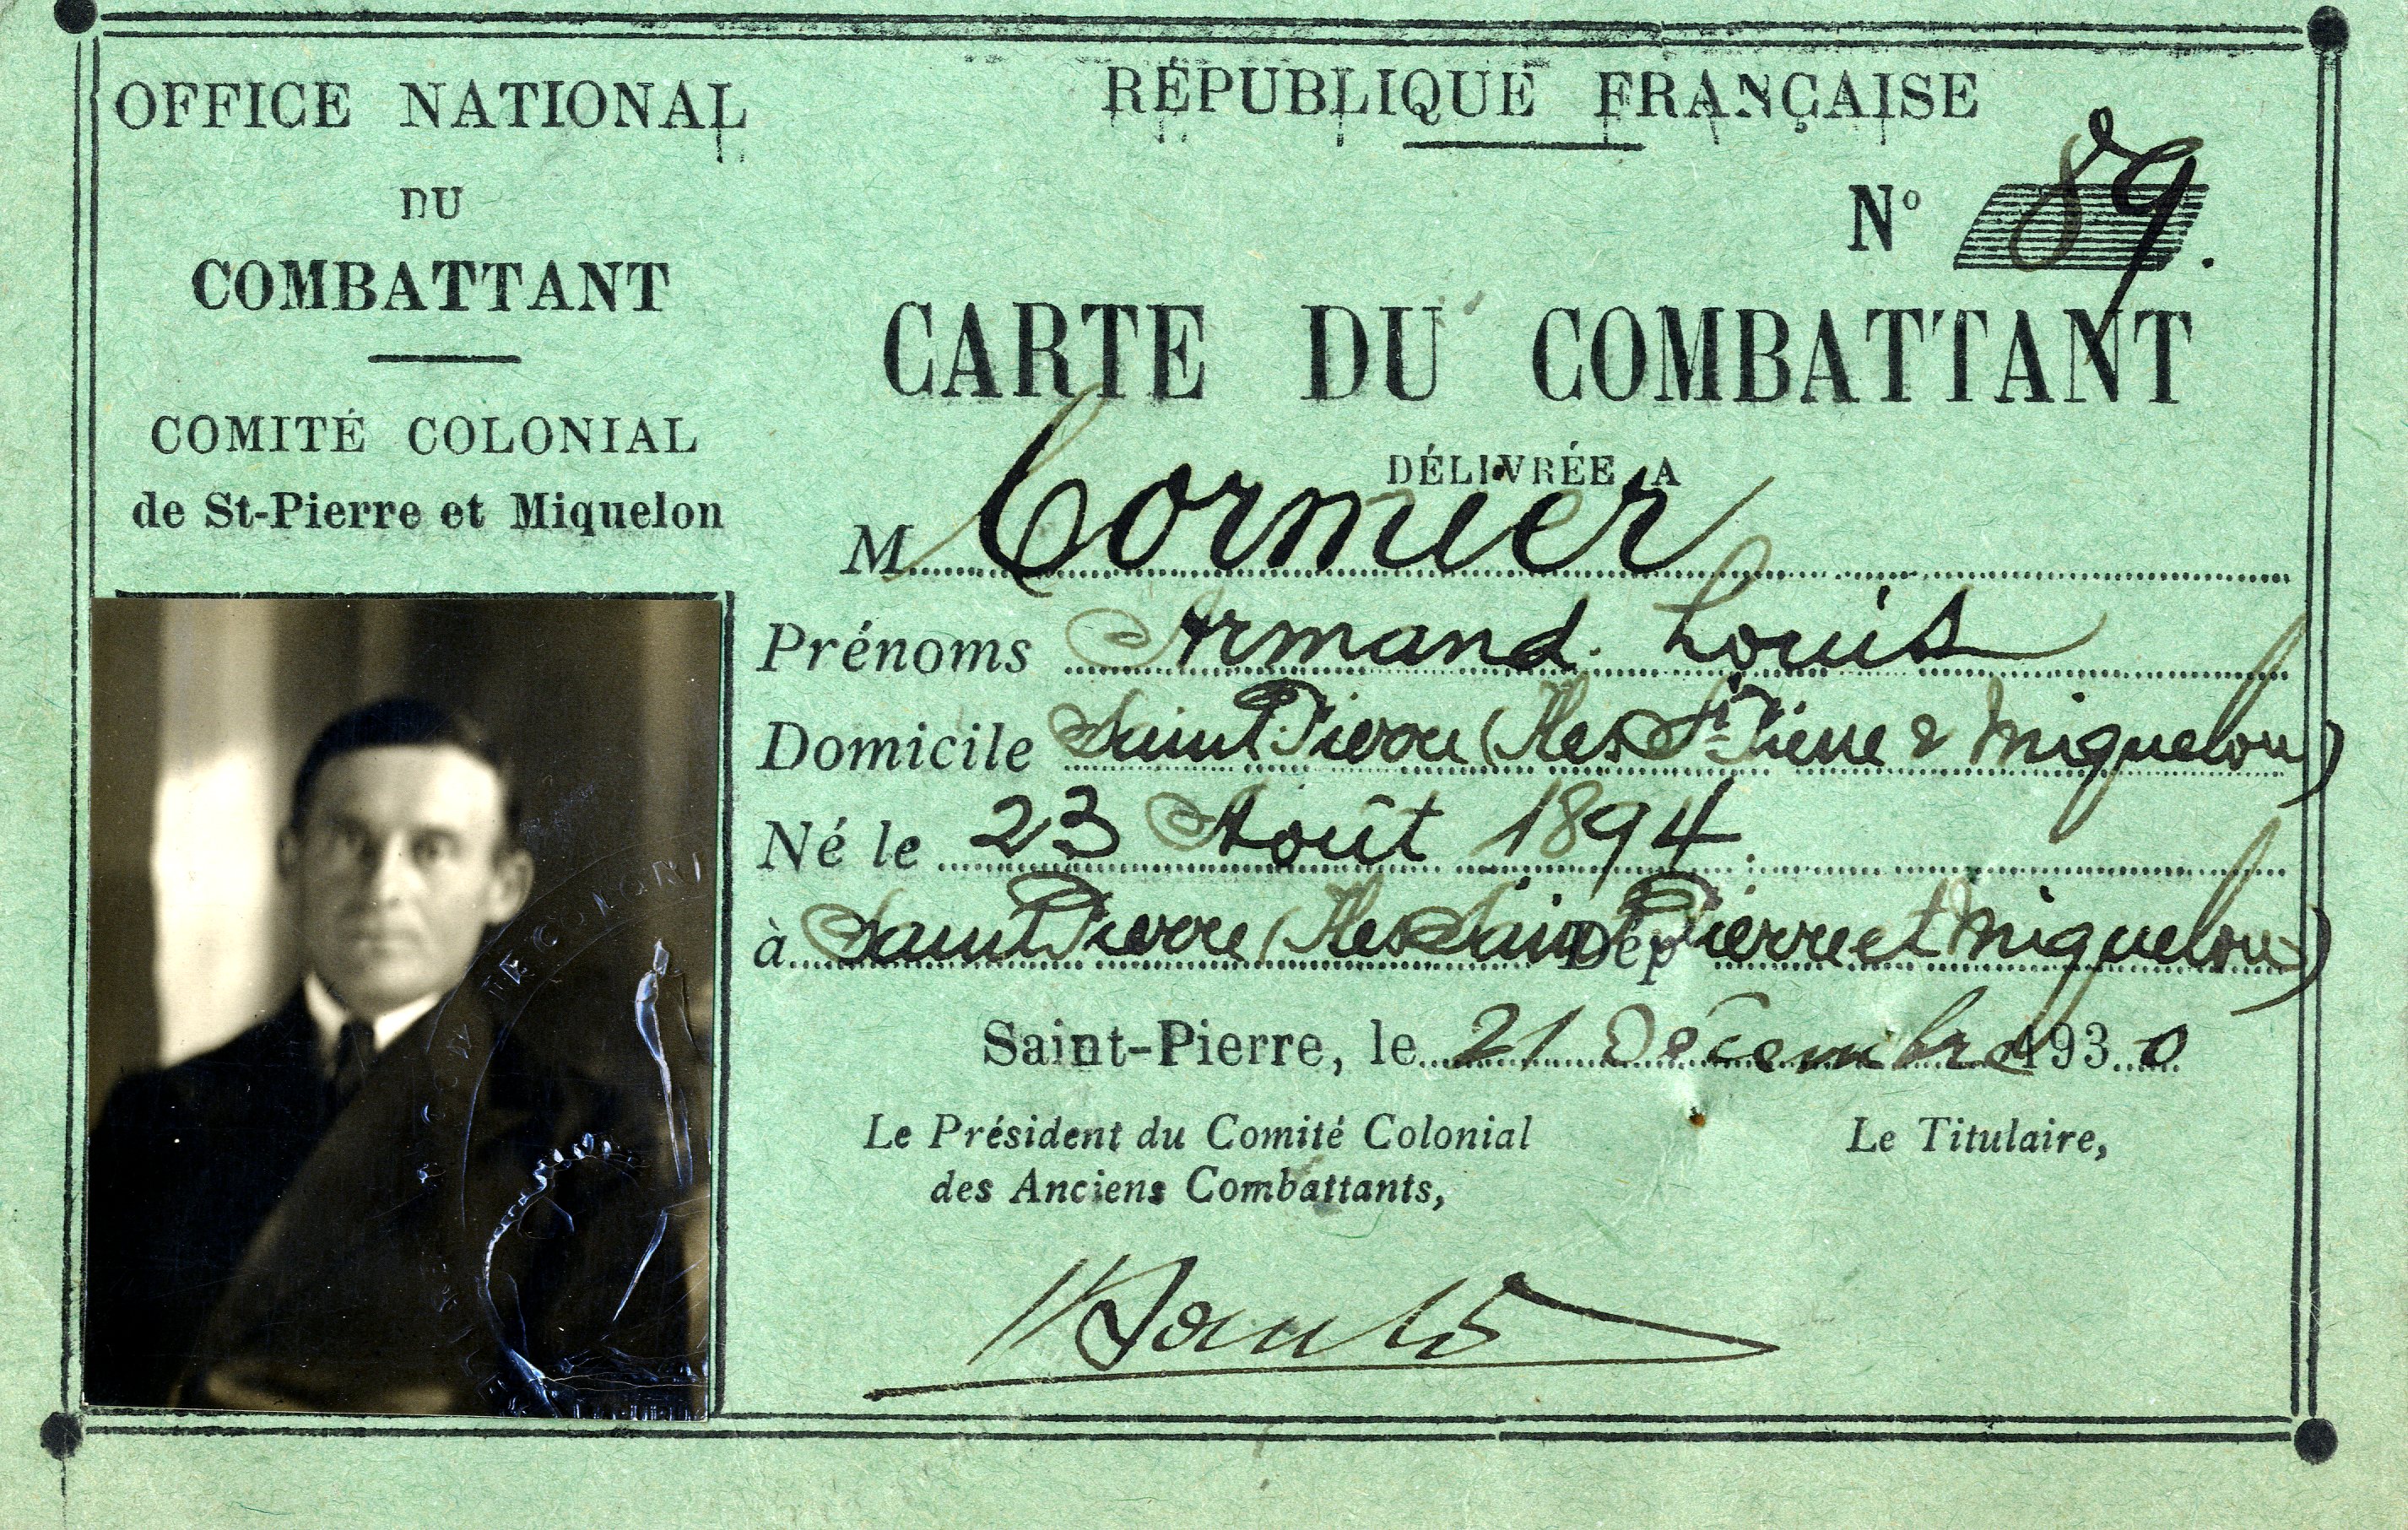 OFFICE NATIONAL
DU
COMBATTANT
COMITÉ COLONIAL
de St-Pierre et Miquelon
RÉPUBLIQUE FRANÇAISE
Nº 89.
CARTE DU COMBATTANT
DÉLIVRÉE A
M Cormier
Prénoms Armand Louis
Domicile Saint Pierre (Iles St Pierre & Miquelon)
Né le 23 Août 1894
à Saint Pierre (Iles Saint Pierre et Miquelon) Dép
Saint-Pierre, le 21 Décembre 1930
Le Président du Comité Colonial
des Anciens Combattants,
Le Titulaire,